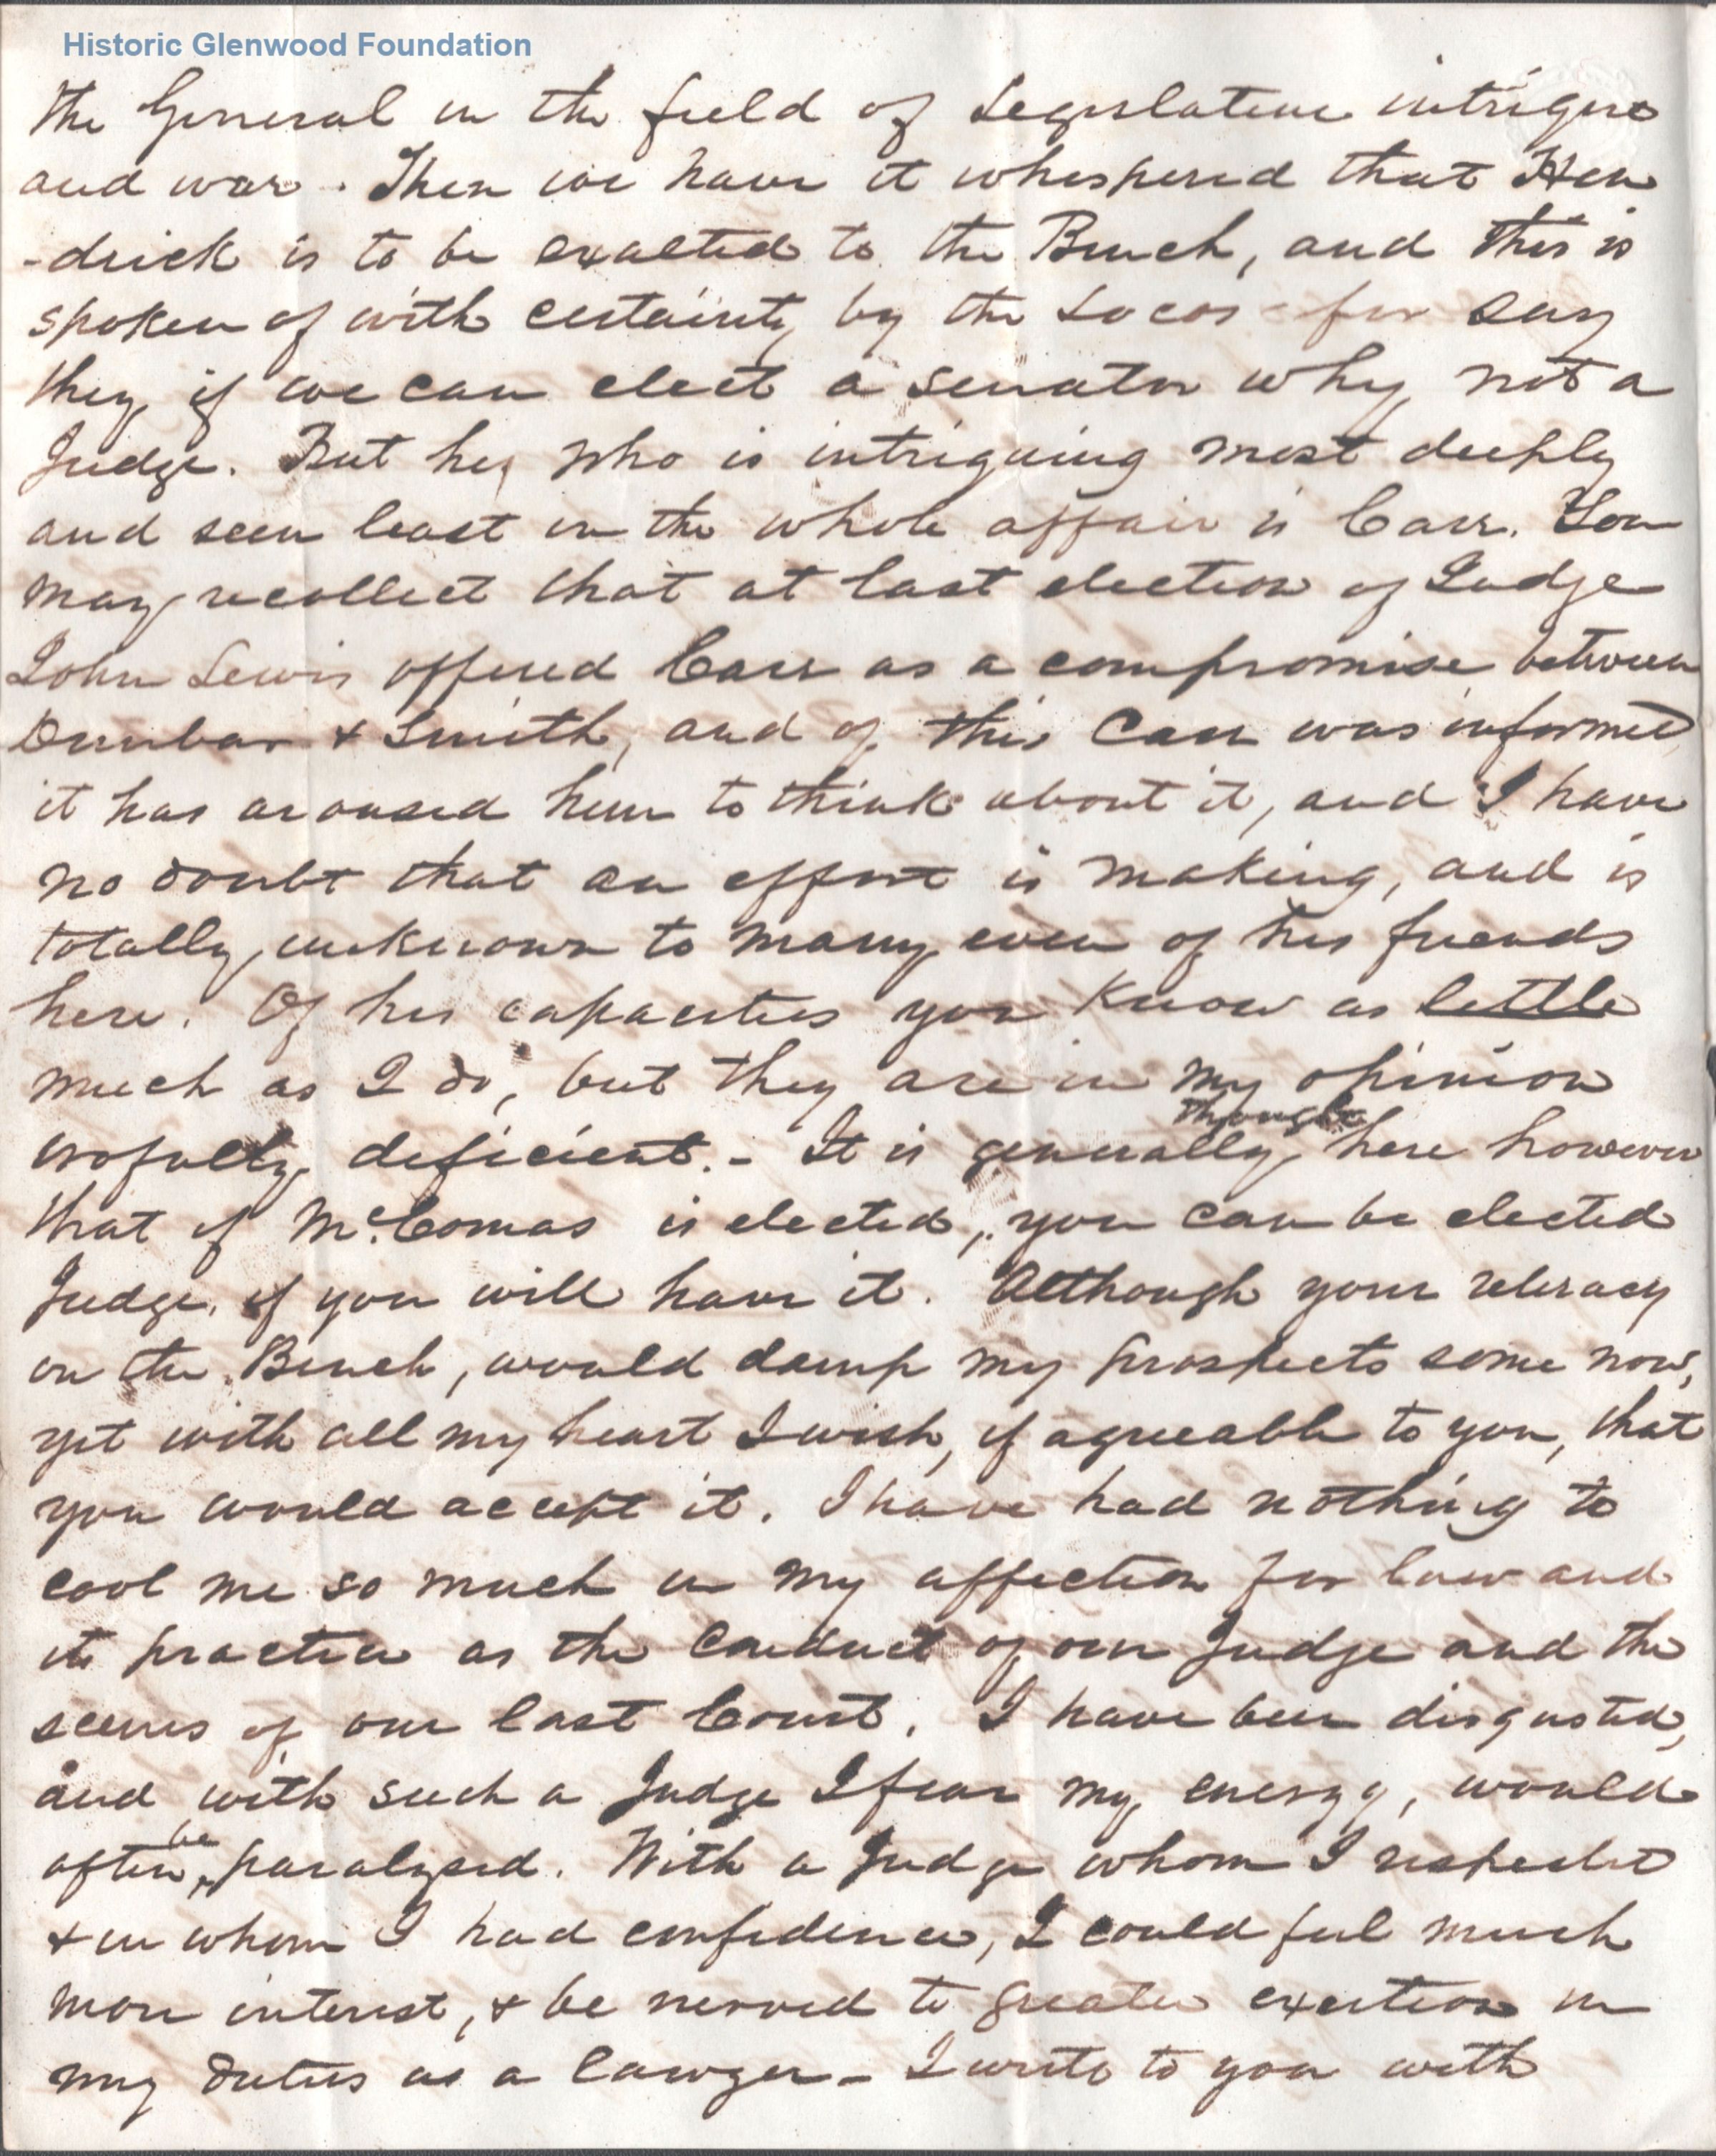 Historic Glenwood Foundation
The General in the field of Legislative intrigue
and war. Then we have it whispered that Hen
-drick is to be exalted to the Bench, and this is
spoken of with certainty by the Locos - for say
they, if we can elect a senator why not a
Judge. But he, who is intriguing most deeply
and seen least in the whole affair is Carr. You
may recollect that at last election of Judge
John Lewis offered Carr as a compromise between
Dunbar & Smith, and of this Carr was informed
it has aroused him to think about it, and I have
no doubt that an effort is making, and is
totally unknown to many even of his friends
here. Of his capacities you know as little
much as I do, but they are in my opinion
wofully deficient. - It is generally thought here however
that if McComas is elected, you can be elected
Judge, if you will have it. Although your
on the Bench, would damp my prospects some now,
yet with all my heart I wish, if agreeable to you, that
you would accept it. I have had nothing to
cool me so much in my affection for law and
its practice as the conduct of our Judge and the
scenes of our last Court. I have been disgusted,
and with such a Judge I fear my energy, would
often be paralyzed. With a Judge whom I respected
& in whom I had confidence, I could feel much
more interest, & be nerved to greater exertion in
my duties as a lawyer - I write to you with